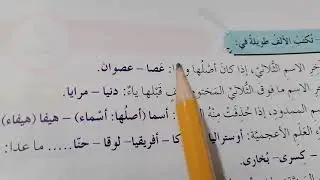 – تُكتَبُ الألفُ طويلةً في:
آخرِ الاسمِ الثُّلاثيِّ، إذا كانَ أصلُها: عَصا – عصوان.
الاسمِ ما فوقَ الثُّلاثيِّ قبلَها ياءٌ: دنيا – مرايا.
الممدودِ، إذا حُذفَتْ: أسما (أصلُها: أسْماء) – هيفا (هيفاء)
العَلَمِ الأعجميَّةِ: أوستراليا – أفريقيا – لوقا – حنّا..... ما عدا:
– كسرى – بُخارى.